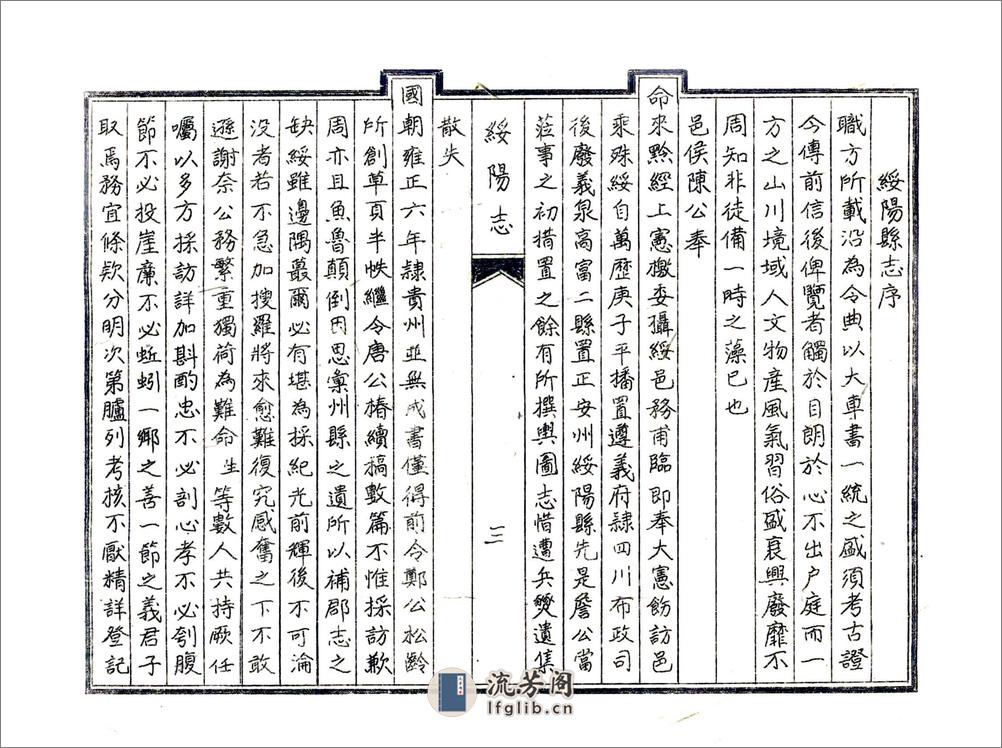 綏陽縣志序
職方所載沿為令典以大專書一統之盛須考古證
今傳前信後俾覽者觸於目朗於心不出户庭而一
方之山川境域人文物產風氣習俗盛衰興廢靡不
周知非徒備一時之藻已也
邑侯陳公奉
命來黔經上憲檄委攝綏邑務甫臨即奉大憲飭訪邑
乘殊綏自萬歷庚子平播置遵義府隸四川布政司
後廢義泉高富二縣置正安州綏陽縣先是詹公當
蒞事之初措置之餘有所撰輿圖志惜遭兵燹遺集
綏陽志
三
散失
國朝雍正六年隸貴州並無成書僅得前令鄭公松齡
所創草頁半帙繼令唐公椿續稿數篇不惟採訪歉
周亦且魚魯顛倒因思彙州縣之遺所以補郡志之
缺綏雖邊隅蕞爾必有堪為採紀光前輝後不可淪
没者若不急加搜羅將來愈難復究感奮之下不敢
遜謝奈公務繁重獨荷為難命生等數人共持厥任
囑以多方採訪詳加斟酌忠不必剖心孝不必刳腹
節不必投崖廉不必蚯蚓一鄉之善一節之義君子
取焉務宜條欵分明次第臚列考核不厭精詳登記
流芳阁
lfglib.cn